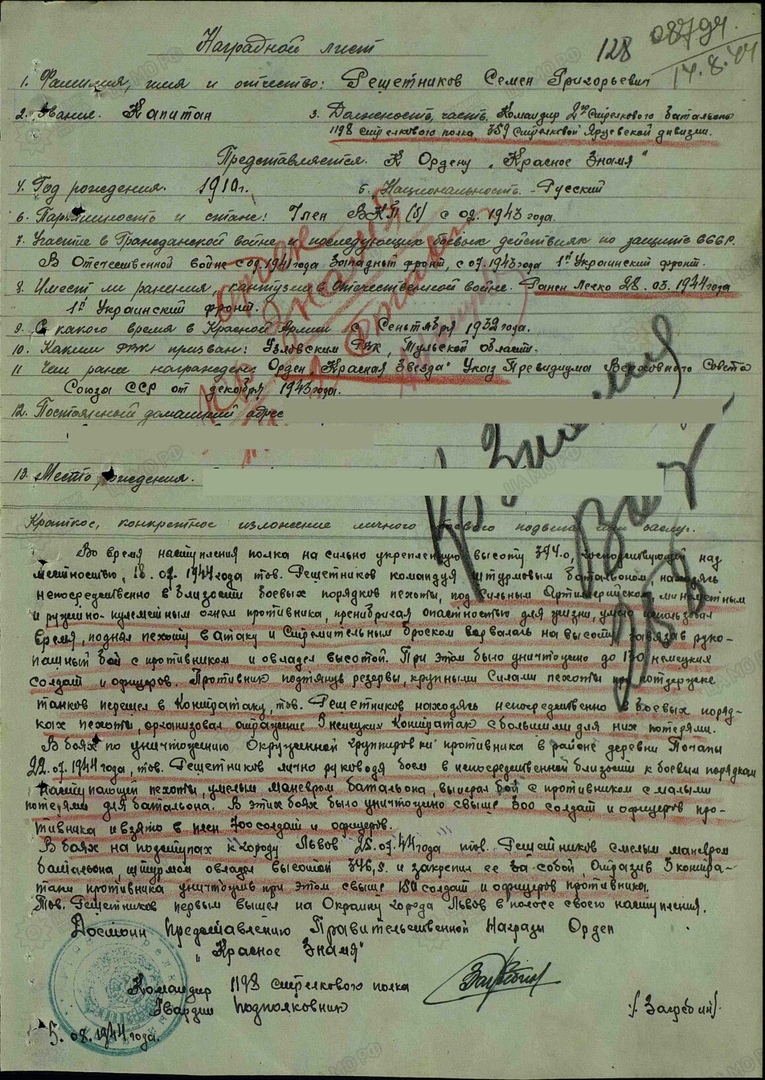 128
08794
14.8.44
Наградной лист
1. Фамилия, имя и отчество: Решетников Семен Григорьевич
2. Звание. Капитан 3. Должность, часть. Командир 2го стрелкового батальона
1198 стрелкового полка 359 стрелковой Ярцевской дивизии.
Представляется. К Ордену „Красное Знамя"
4. Год рождения. 1910г. 5. Национальность. - Русский
6. Партийность и стаж: Член ВКП(б) с 02.1943 года.
7. Участие в Гражданской войне и последующих боевых действиях по защите СССР.
В Отечественной войне с 09.1941 года Западный фронт, с 07.1943 года 1й Украинский фронт.
8. Имеет ли ранения и контузии в отечественной войне. Ранен легко 28.03.1944 года
1й Украинский фронт.
9. С какого время в Красной Армии с Сеньтября 1932 года.
10. Каким РВК призван: Узловским РВК, Тульской области.
11 Чем ранее награжден: Орден „Красная Звезда" Указ Превидиума Верховного Совета
Союза ССР от декабря 1943 года.
12. Постоянный домашний адрес
13. Место рождения.
Краткое, конкретное изложение личного боевого подвига или заслуг.
Во время наступления полка на сильно укрепленную высоту 394.0, господствующий над
местностью, 18.07.1944 года тов. Решетников командуя штурмовым батальоном, находясь
непосредственно в близости боевых порядков пехоты, под сильным Артиллерийско минометным
и ружейно-пулеметным огнем противника, пренибригая опастностью для жизни, умело использовал
время, поднял пехоту в атаку и стремительным броском ворвалась на высоту завязав руко-
пашный бой с противником и овладел высотой. При этом было уничтожено до 130 немецких
солдат и офицеров. Противник подтянув резервы, крупными силами пехоты при поддержке
танков перешел в Контратаку, тов. Решетников находясь непосредственно в боевых поряд-
ках пехоты, организовал отражение 3 немецких Контратак с большими для них потерями.
В боях по уничтожению Окруженной группировки противника в районе деревни Почапы
22.07.1944 года, тов. Решетников лично руководя боем в непосредственной близости к боевым порядкам
наступающей пехоты, умелым маневром батальона, выиграл бой с противником с малыми
потерями для батальона. В этих боях было уничтожено свыше 300 солдат и офицеров про-
тивника и взято в плен 700 солдат и офицеров.
В боях на подступах к городу Львов 25.07.44 года тов. Решетников смелым маневром
батальона, штурмом овладел высотой 346,5. и закрепил ее за собой, Отразив 3 контра-
таки противника уничтожив при этом свыше 150 солдат и офицеров противника.
Тов. Решетников первым вышел на Окраину города Львов в полосе своего наступления.
Достоин предоставлению Правительственной Награды Орден
„Красное Знамя"
Командир 1198 стрелкового полка
Гвардии подполковник /. Загребин/.
5.08.1944 года.